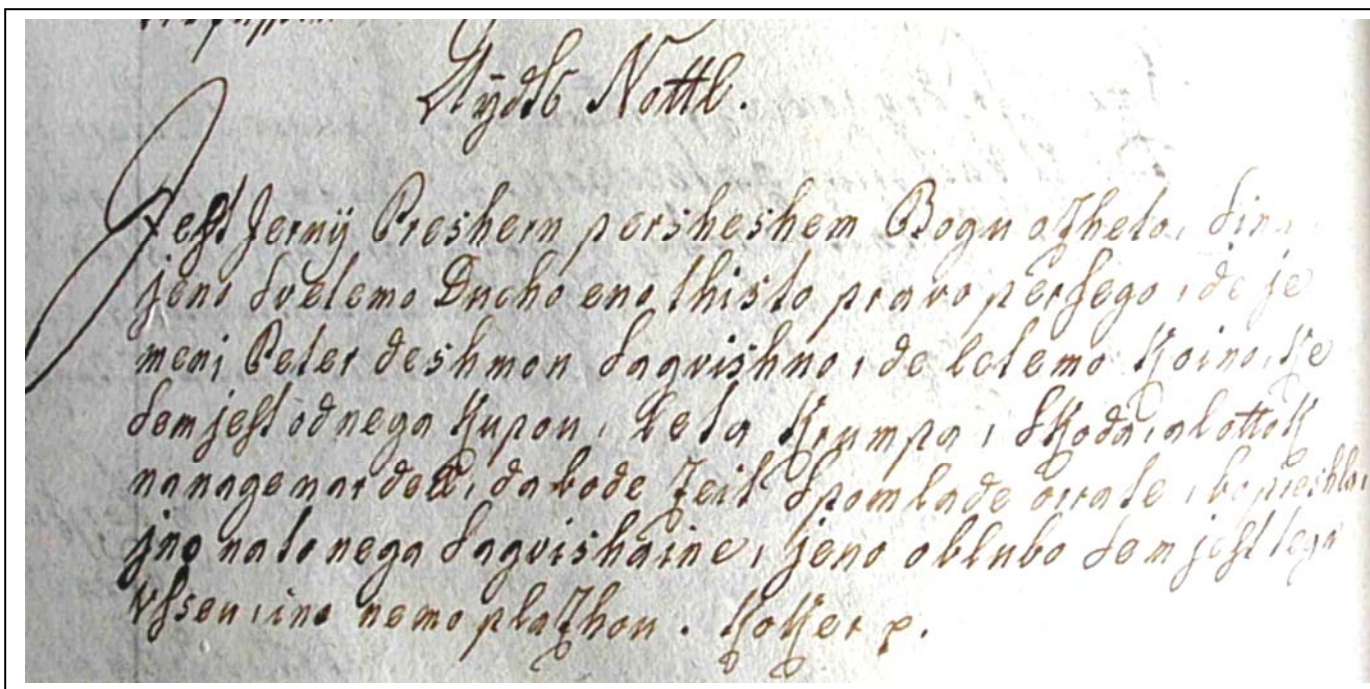 Aÿdts Nottl.
Jest Jerny Preshern persheshem Bogu ozheto, Sinu,
jeno Svetemo Ducho eno thisto pravo persego, de je
meni Peter deshmon Sagvishno, de letemo Koino, Ke
Sem jest od nega Kupou, leta Krumpa, Skoda, al ottok
na nage nardeu, da bode Zeit Spomlade orrate,
jno na to nega Sagvishaine, jeno oblubo Sem jest tega
Vssen, ino nemo plazhou. KoKer p.